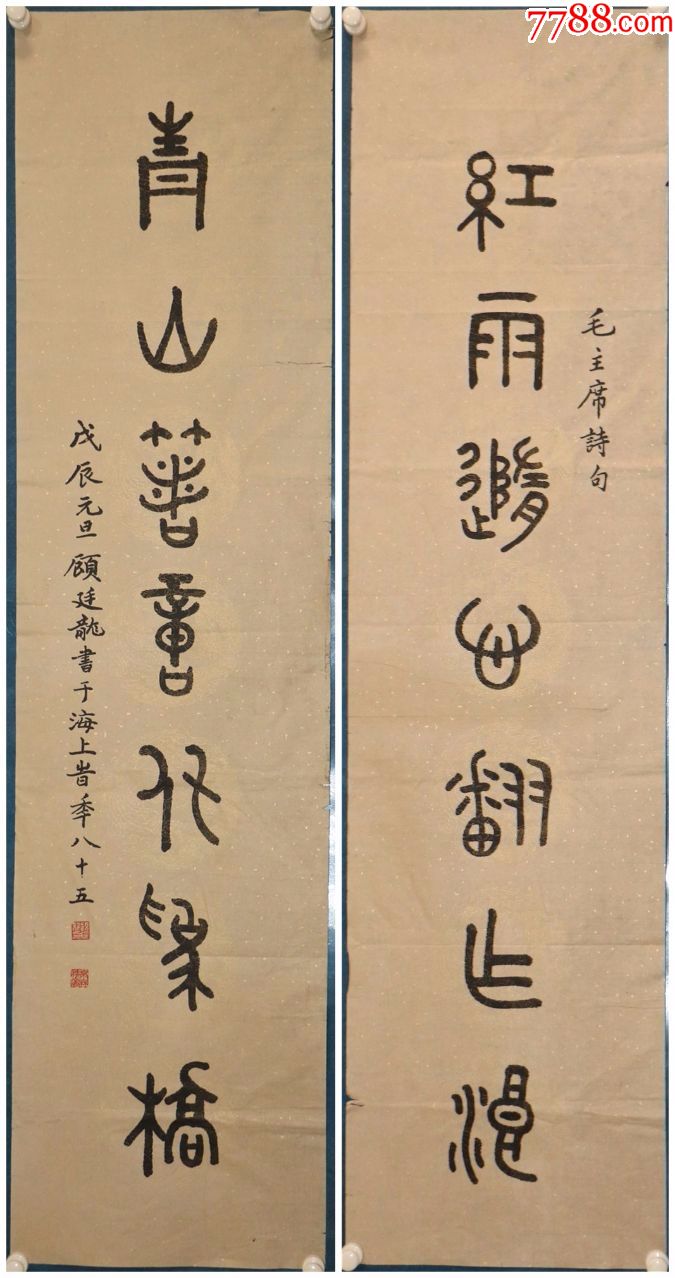 7788.com
紅雨隨心翻乍浪
毛主席詩句
青山著意化為橋
戊辰元旦顧廷龍書于海上旹秊八十五